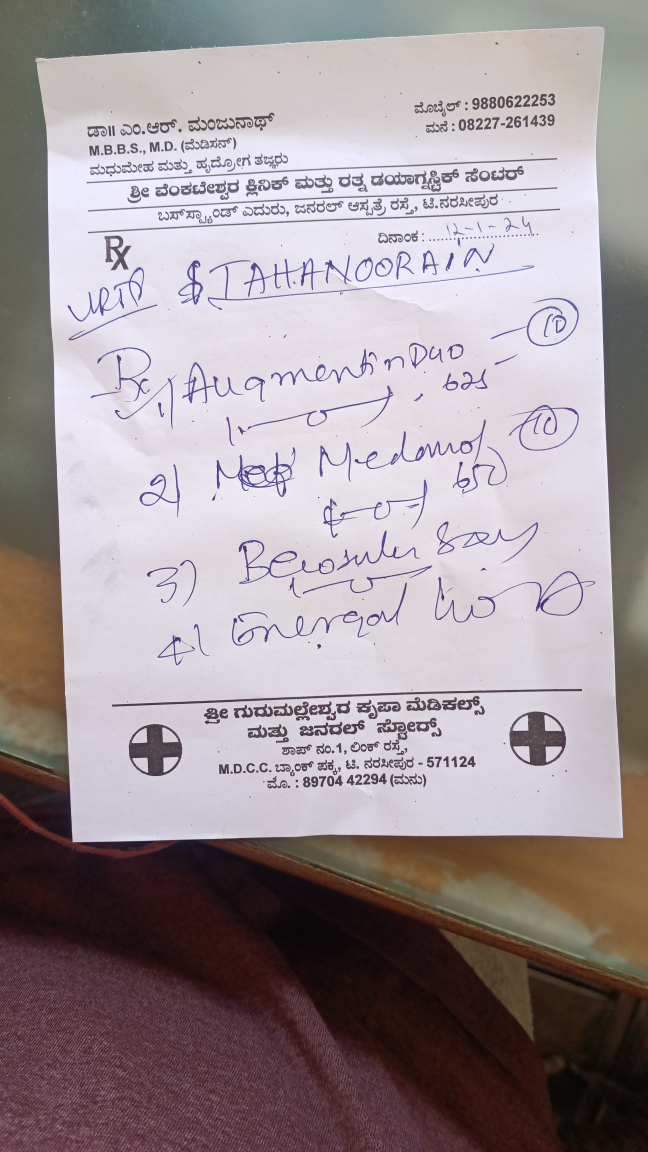 ಡಾ॥ ಎಂ.ಆರ್. ಮಂಜುನಾಥ್
M.B.B.S., M.D. (ಮೆಡಿಸನ್)
ಮಧುಮೇಹ ಮತ್ತು ಹೃದ್ರೋಗ ತಜ್ಞರು
ಮೊಬೈಲ್ : 9880622253
ಮನೆ : 08227-261439
ಶ್ರೀ ವೆಂಕಟೇಶ್ವರ ಕ್ಲಿನಿಕ್ ಮತ್ತು ರತ್ನ ಡಯಾಗ್ನಸ್ಟಿಕ್ ಸೆಂಟರ್
ಬಸ್‌ಸ್ಟ್ಯಾಂಡ್ ಎದುರು, ಜನರಲ್ ಆಸ್ಪತ್ರೆ ರಸ್ತೆ, ಟಿ.ನರಸೀಪುರ
Rx
ದಿನಾಂಕ : 12-1-24
JAHANOORAIN
Rx 1) Augmentin Duo 10
625
2) 10
650
3) Becosules
4)
ಶ್ರೀ ಗುರುಮಲ್ಲೇಶ್ವರ ಕೃಪಾ ಮೆಡಿಕಲ್ಸ್
ಮತ್ತು ಜನರಲ್ ಸ್ಟೋರ್ಸ್
ಶಾಪ್ ನಂ.1, ಲಿಂಕ್ ರಸ್ತೆ,
M.D.C.C. ಬ್ಯಾಂಕ್ ಪಕ್ಕ, ಟಿ. ನರಸೀಪುರ - 571124
ಮೊ. : 89704 42294 (ಮನು)